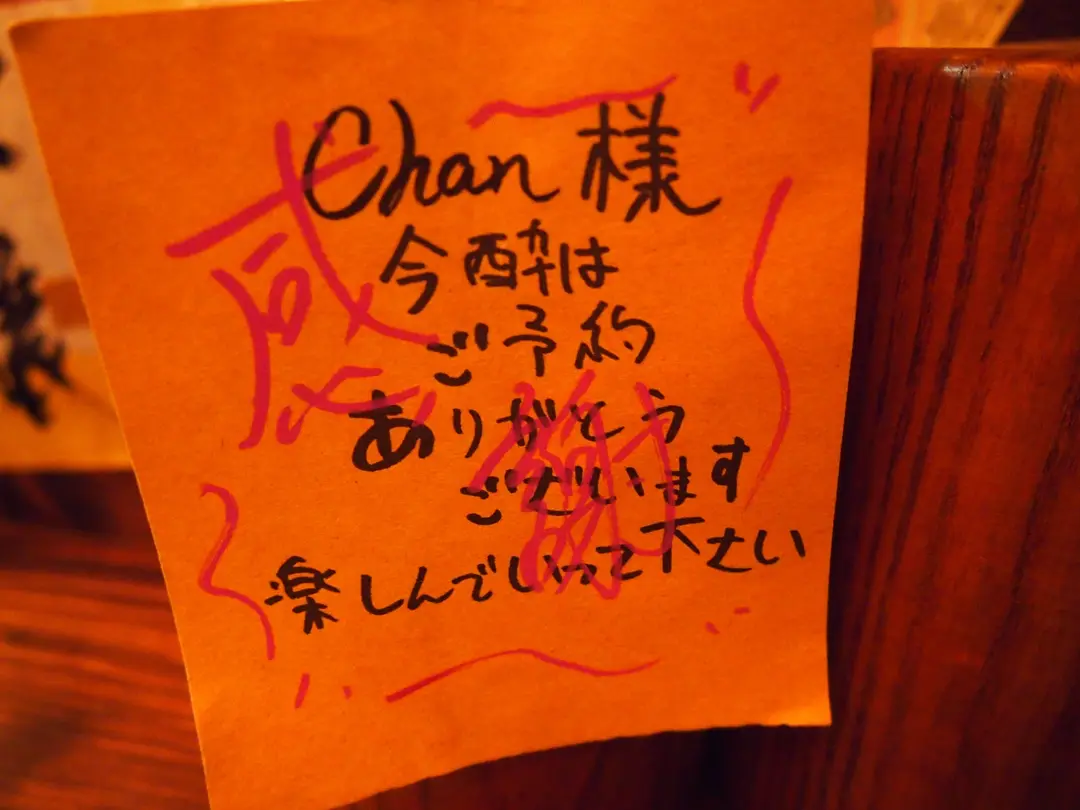 Chan 様
今酔は
ご予約
ありがとう
ございます
楽しんでいって下さい
感謝